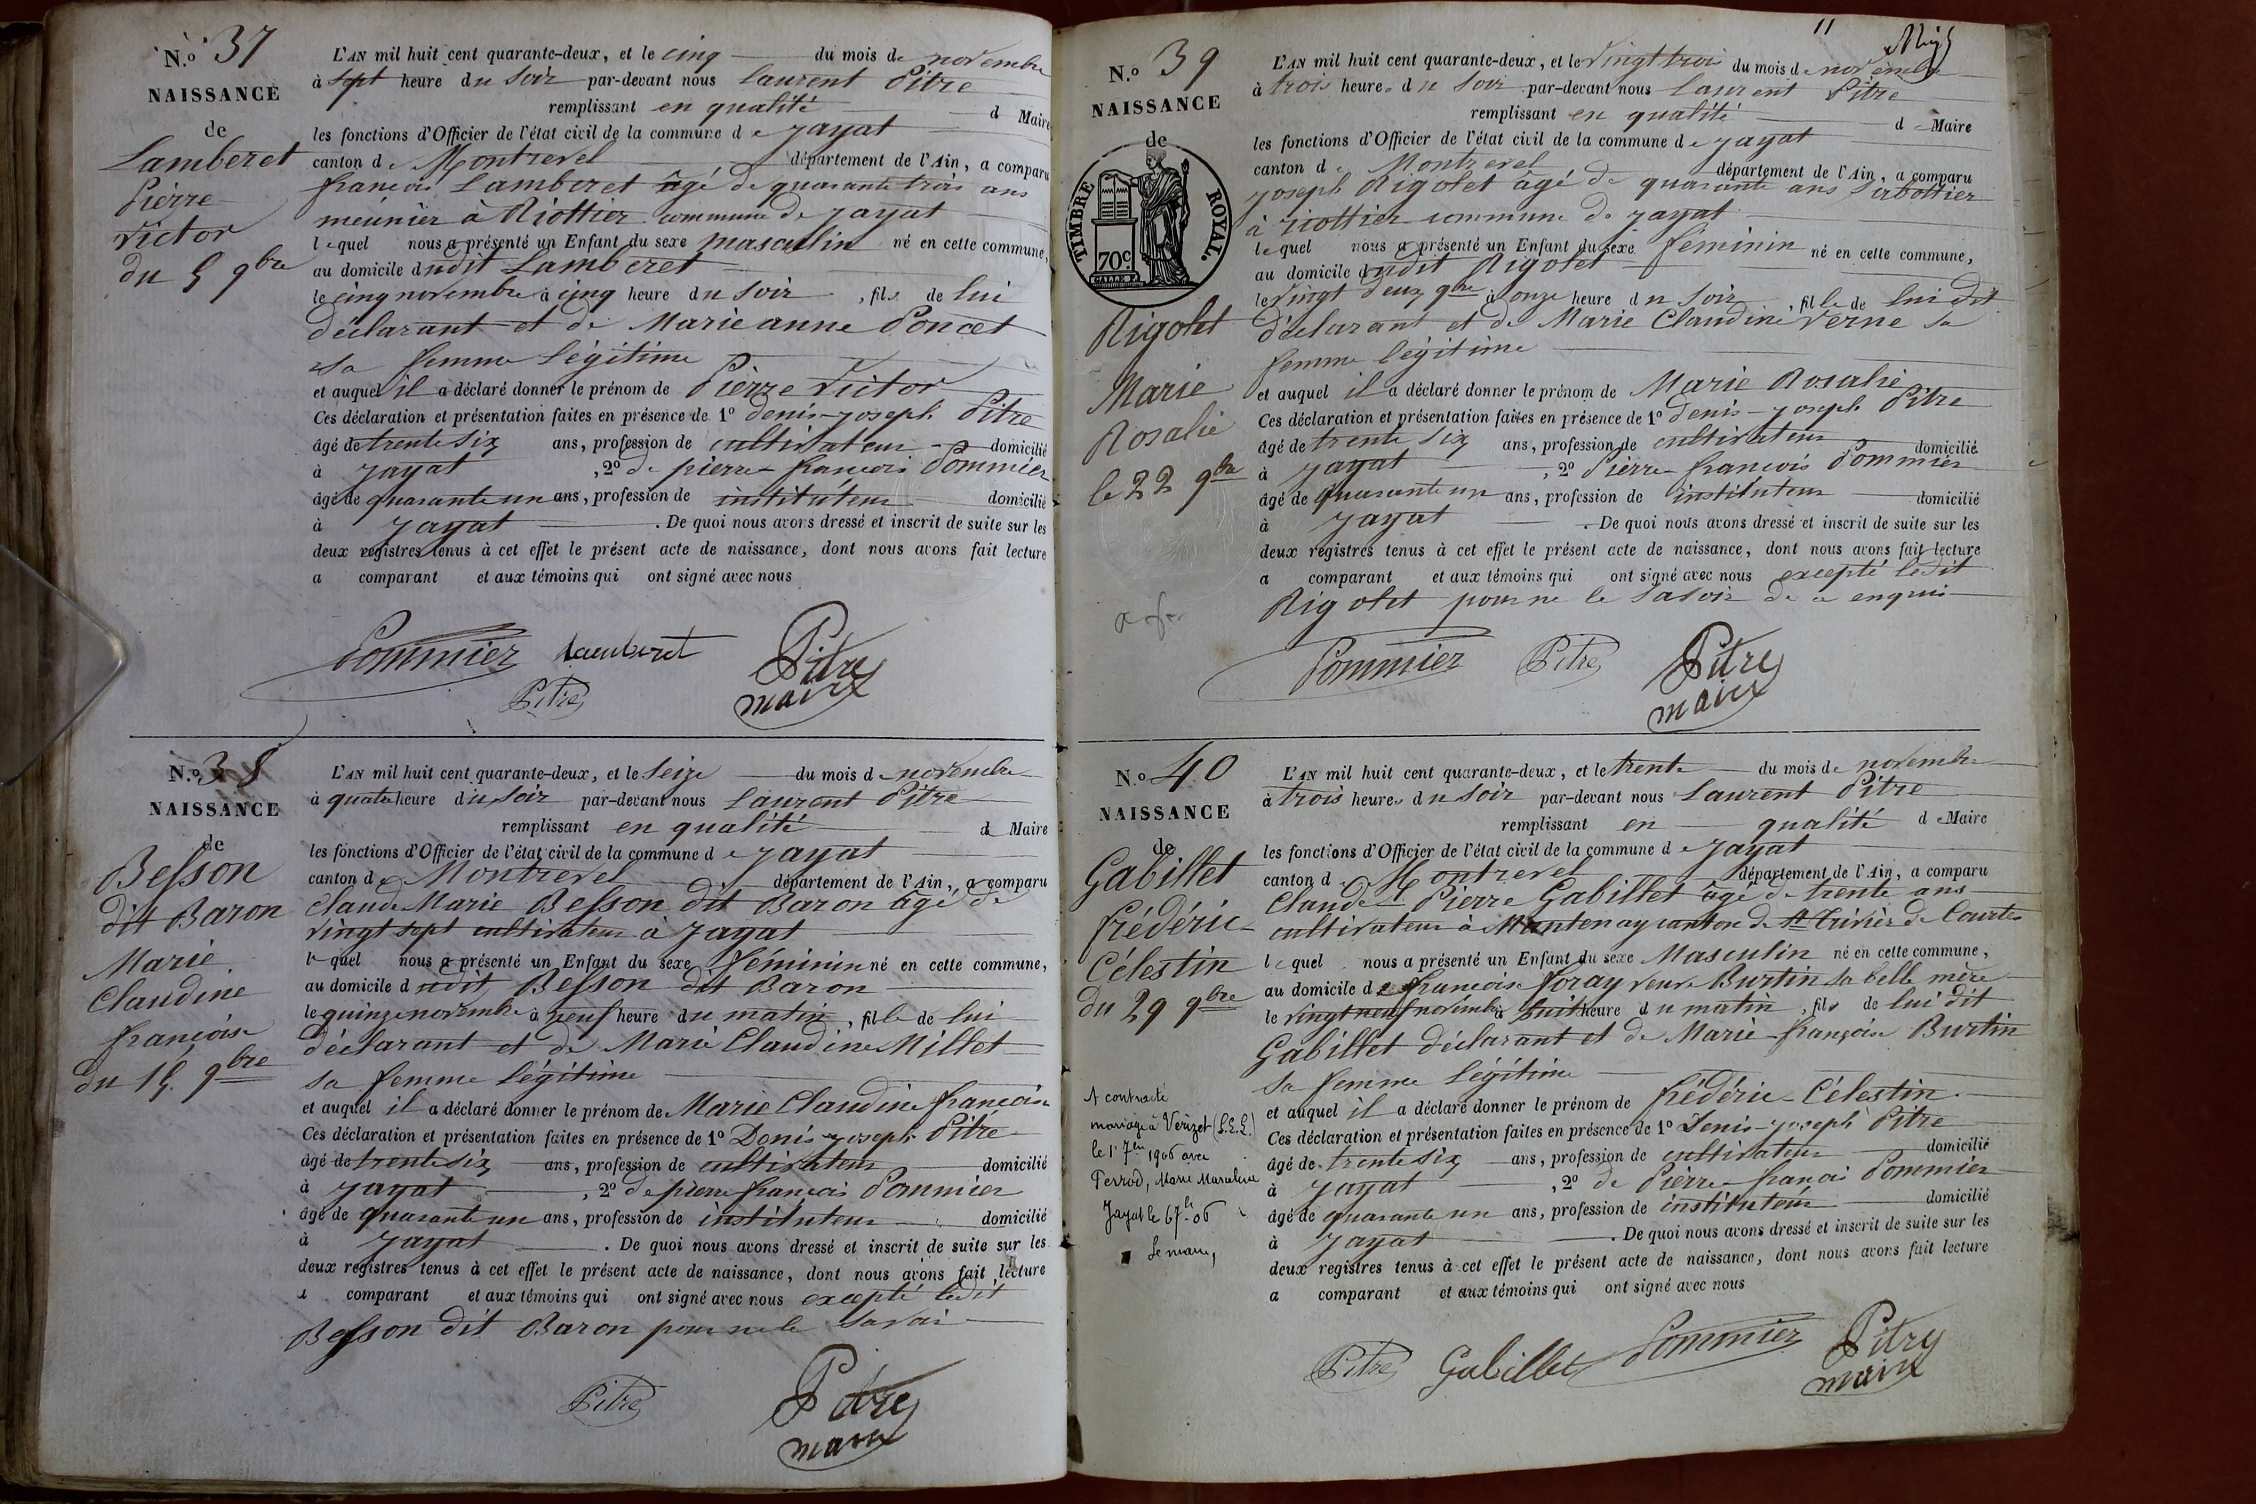 N.º 37
NAISSANCE
de
Lamberet
Pierre
Victor
du 5 9bre
L'AN mil huit cent quarante-deux, et le cinq du mois de novembre
à sept heure du soir par-devant nous Laurent Pitre
remplissant en qualité d Maire
les fonctions d'Officier de l'état civil de la commune de Jayat
canton de Montrevel département de l'Ain, a comparu
françois Lamberet âgé de quarante trois ans
meunier à Riottier commune de Jayat
lequel nous a présenté un Enfant du sexe masculin né en cette commune,
au domicile dudit Lamberet
le cinq novembre à cinq heure du soir, fils de lui
déclarant et de Marie anne Poncet
sa femme légitime
et auquel il a déclaré donner le prénom de Pierre Victor
Ces déclaration et présentation faites en présence de 1º denis-joseph Pitre
âgé de trente six ans, profession de cultivateur domicilié
à Jayat, 2º de pierre-françois Pommier
âgé de quarante un ans, profession de instituteur domicilié
à Jayat. De quoi nous avons dressé et inscrit de suite sur les
deux registres tenus à cet effet le présent acte de naissance, dont nous avons fait lecture
a comparant et aux témoins qui ont signé avec nous
Pommier Lamberet Pitre
Pitre maire
N.º 38
NAISSANCE
de
Besson
dit Baron
Marie
Claudine
françoise
du 15 9bre
L'AN mil huit cent quarante-deux, et le seize du mois de novembre
à quatre heure du soir par-devant nous Laurent Pitre
remplissant en qualité de Maire
les fonctions d'Officier de l'état civil de la commune de Jayat
canton de Montrevel département de l'Ain, a comparu
Claude Marie Besson dit Baron âgé de
vingt sept cultivateur à Jayat
lequel nous a présenté un Enfant du sexe féminin né en cette commune,
au domicile dudit Besson dit Baron
le quinze novembre à neuf heure du matin, fille de lui
déclarant et de Marie Claudine Millet
sa femme légitime
et auquel il a déclaré donner le prénom de Marie Claudine françoise
Ces déclaration et présentation faites en présence de 1º Denis-joseph Pitre
âgé de trente six ans, profession de cultivateur domicilié
à Jayat, 2º de pierre françois Pommier
âgé de quarante un ans, profession de instituteur domicilié
à Jayat. De quoi nous avons dressé et inscrit de suite sur les
deux registres tenus à cet effet le présent acte de naissance, dont nous avons fait lecture
a comparant et aux témoins qui ont signé avec nous excepté ledit
Besson dit Baron pour ne le savoir
Pitre Pitre
maire
11
N.º 39
NAISSANCE
de
TIMBRE ROYAL.
70c.
Rigolet
Marie
Rosalie
le 22 9bre
L'AN mil huit cent quarante-deux, et le vingt trois du mois de novembre
à trois heures du soir par-devant nous Laurent Pitre
remplissant en qualité d Maire
les fonctions d'Officier de l'état civil de la commune de Jayat
canton de Montrevel département de l'Ain, a comparu
joseph Rigolet âgé de quarante ans sabottier
à riottier commune de Jayat
lequel nous a présenté un Enfant du sexe féminin né en cette commune,
au domicile dudit Rigolet
le vingt deux 9bre à onze heure du soir, fille de lui dit
déclarant et de Marie Claudine Verne sa
femme légitime
et auquel il a déclaré donner le prénom de Marie Rosalie
Ces déclaration et présentation faites en présence de 1º denis-joseph Pitre
âgé de trente six ans, profession de cultivateur domicilié
à Jayat, 2º Pierre-françois Pommier
âgé de quarante un ans, profession de instituteur domicilié
à Jayat. De quoi nous avons dressé et inscrit de suite sur les
deux registres tenus à cet effet le présent acte de naissance, dont nous avons fait lecture
a comparant et aux témoins qui ont signé avec nous excepté ledit
Rigolet pour ne le savoir de ce enquis
Pommier Pitre Pitre
maire
N.º 40
NAISSANCE
de
Gabillet
frédéric
Célestin
du 29 9bre
A contracté
mariage à Verizet (S.&L.)
le 1er 7bre 1906 avec
Perrod, Marie Marceline
Jayat le 6 7bre 06
Le maire,
L'AN mil huit cent quarante-deux, et le trente du mois de novembre
à trois heures du soir par-devant nous Laurent Pitre
remplissant en qualité de Maire
les fonctions d'Officier de l'état civil de la commune de Jayat
canton de Montrevel département de l'Ain, a comparu
Claude Pierre Gabillet âgé de trente ans
cultivateur à Mantenay canton de St Trivier de Courtes
lequel nous a présenté un Enfant du sexe Masculin né en cette commune,
au domicile de françoise foray veuve Burtin sa belle mère
le vingt neuf novembre à huit heure du matin, fils de lui dit
Gabillet déclarant et de Marie françoise Burtin
sa femme légitime
et auquel il a déclaré donner le prénom de frédéric-Célestin
Ces déclaration et présentation faites en présence de 1º Denis-joseph Pitre
âgé de trente six ans, profession de cultivateur domicilié
à Jayat, 2º de Pierre-françois Pommier
âgé de quarante un ans, profession de instituteur domicilié
à Jayat. De quoi nous avons dressé et inscrit de suite sur les
deux registres tenus à cet effet le présent acte de naissance, dont nous avons fait lecture
a comparant et aux témoins qui ont signé avec nous
Pitre Gabillet Pommier Pitre
maire